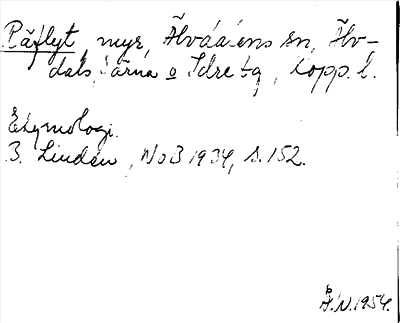 Päflyt, myr, Älvdalens sn, Älv-
dals, Särna o Idre tg, Kopp. l.
Etymologi.
B. Lindén, NoB 1934, s. 152.
Å.N. 1954.